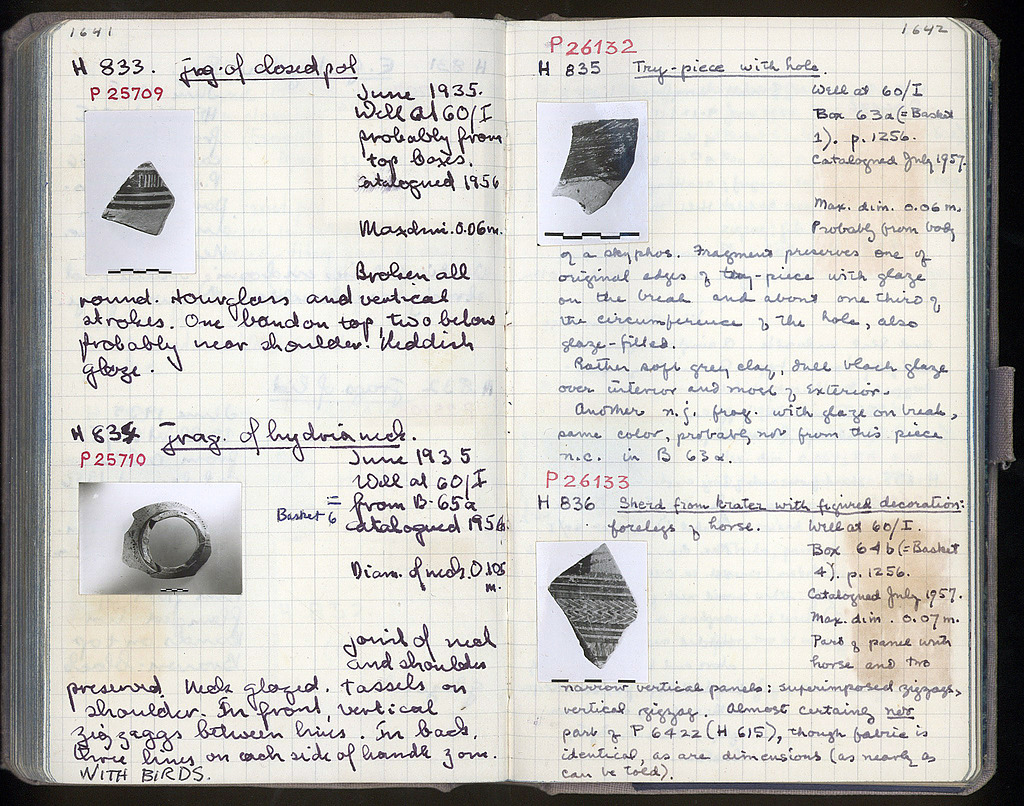 1641
H 833. frag. of closed pot
P 25709
June 1935.
Well at 60/I
probably from
top boxes.
Catalogued 1956
Max dim. 0.06m.
Broken all
round. Hourglass and vertical
strokes. One band on top, two below
probably near shoulder. Reddish
glaze.
H 834 frag. of hydria neck.
P 25710
June 1935
Well at 60/I
= from B. 65a
Basket 6
Catalogued 1956.
Diam. of neck. 0.105
m.
joint of neck
and shoulder
preserved. Neck glazed. Tassels on
shoulder. In front, vertical
zigzaggs between lines. In back,
three lines on each side of handle zone.
WITH BIRDS.
1642
P 26132
H 835 Try-piece with hole.
Well at 60/I
Box 63a (= Basket
1). p. 1256.
Catalogued July 1957.
Max. dim. 0.06 m.
Probably from body
of a skyphos. Fragment preserves one of
original edges of try-piece with glaze
on the break and about one third of
the circumference of the hole, also
glaze-filled.
Rather soft grey clay, dull black glaze
over interior and most of exterior.
Another n.j. frag. with glaze on break,
same color, probably not from this piece
n.c. in B 63a.
P 26133
H 836 Sherd from krater with figured decoration:
forelegs of horse.
Well at 60/I.
Box 64b (= Basket
4). p. 1256.
Catalogued July 1957.
Max. dim. 0.07 m.
Part of panel with
horse and two
narrow vertical panels: superimposed zigzags,
vertical zigzag. Almost certainly not
part of P 6422 (H 615), though fabric is
identical, as are dimensions (as nearly as
can be told).